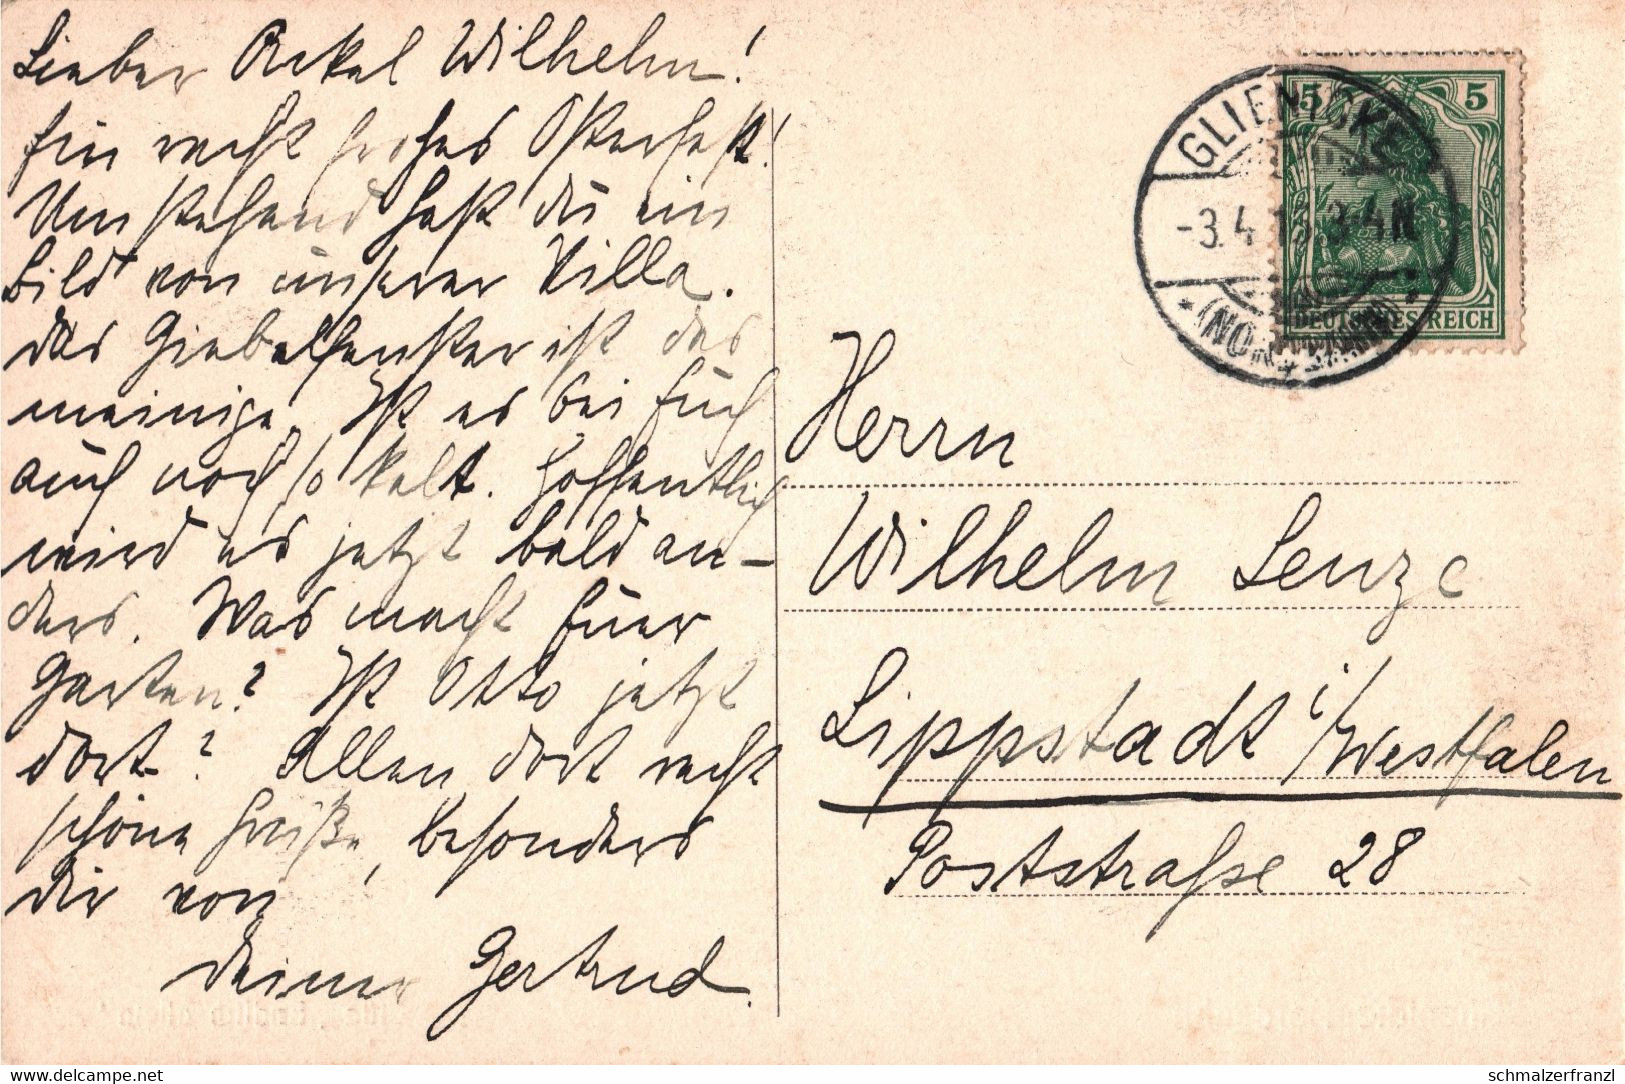 Lieber Onkel Wilhelm!
Ein recht frohes Osterfest!
Umstehend hast du ein
Bild von unserer Villa.
das Giebelfenster ist das
meinige. Ist es bei Euch
auch noch so kalt. Hoffentlich
wird es jetzt bald an-
ders. Was macht Euer
Garten? Ist Otto jetzt
dort? Allen dort recht
schöne Grüße, besonders
dir von
deiner Gertrud.
GLIENICKE
-3.4.1 3-4N
* (NORDBAHN) *
5 5
DEUTSCHES REICH
Herrn
Wilhelm Lenze
Lippstadt i/Westfalen
Poststraße 28
https://www.delcampe.net
schmalzerfranzl